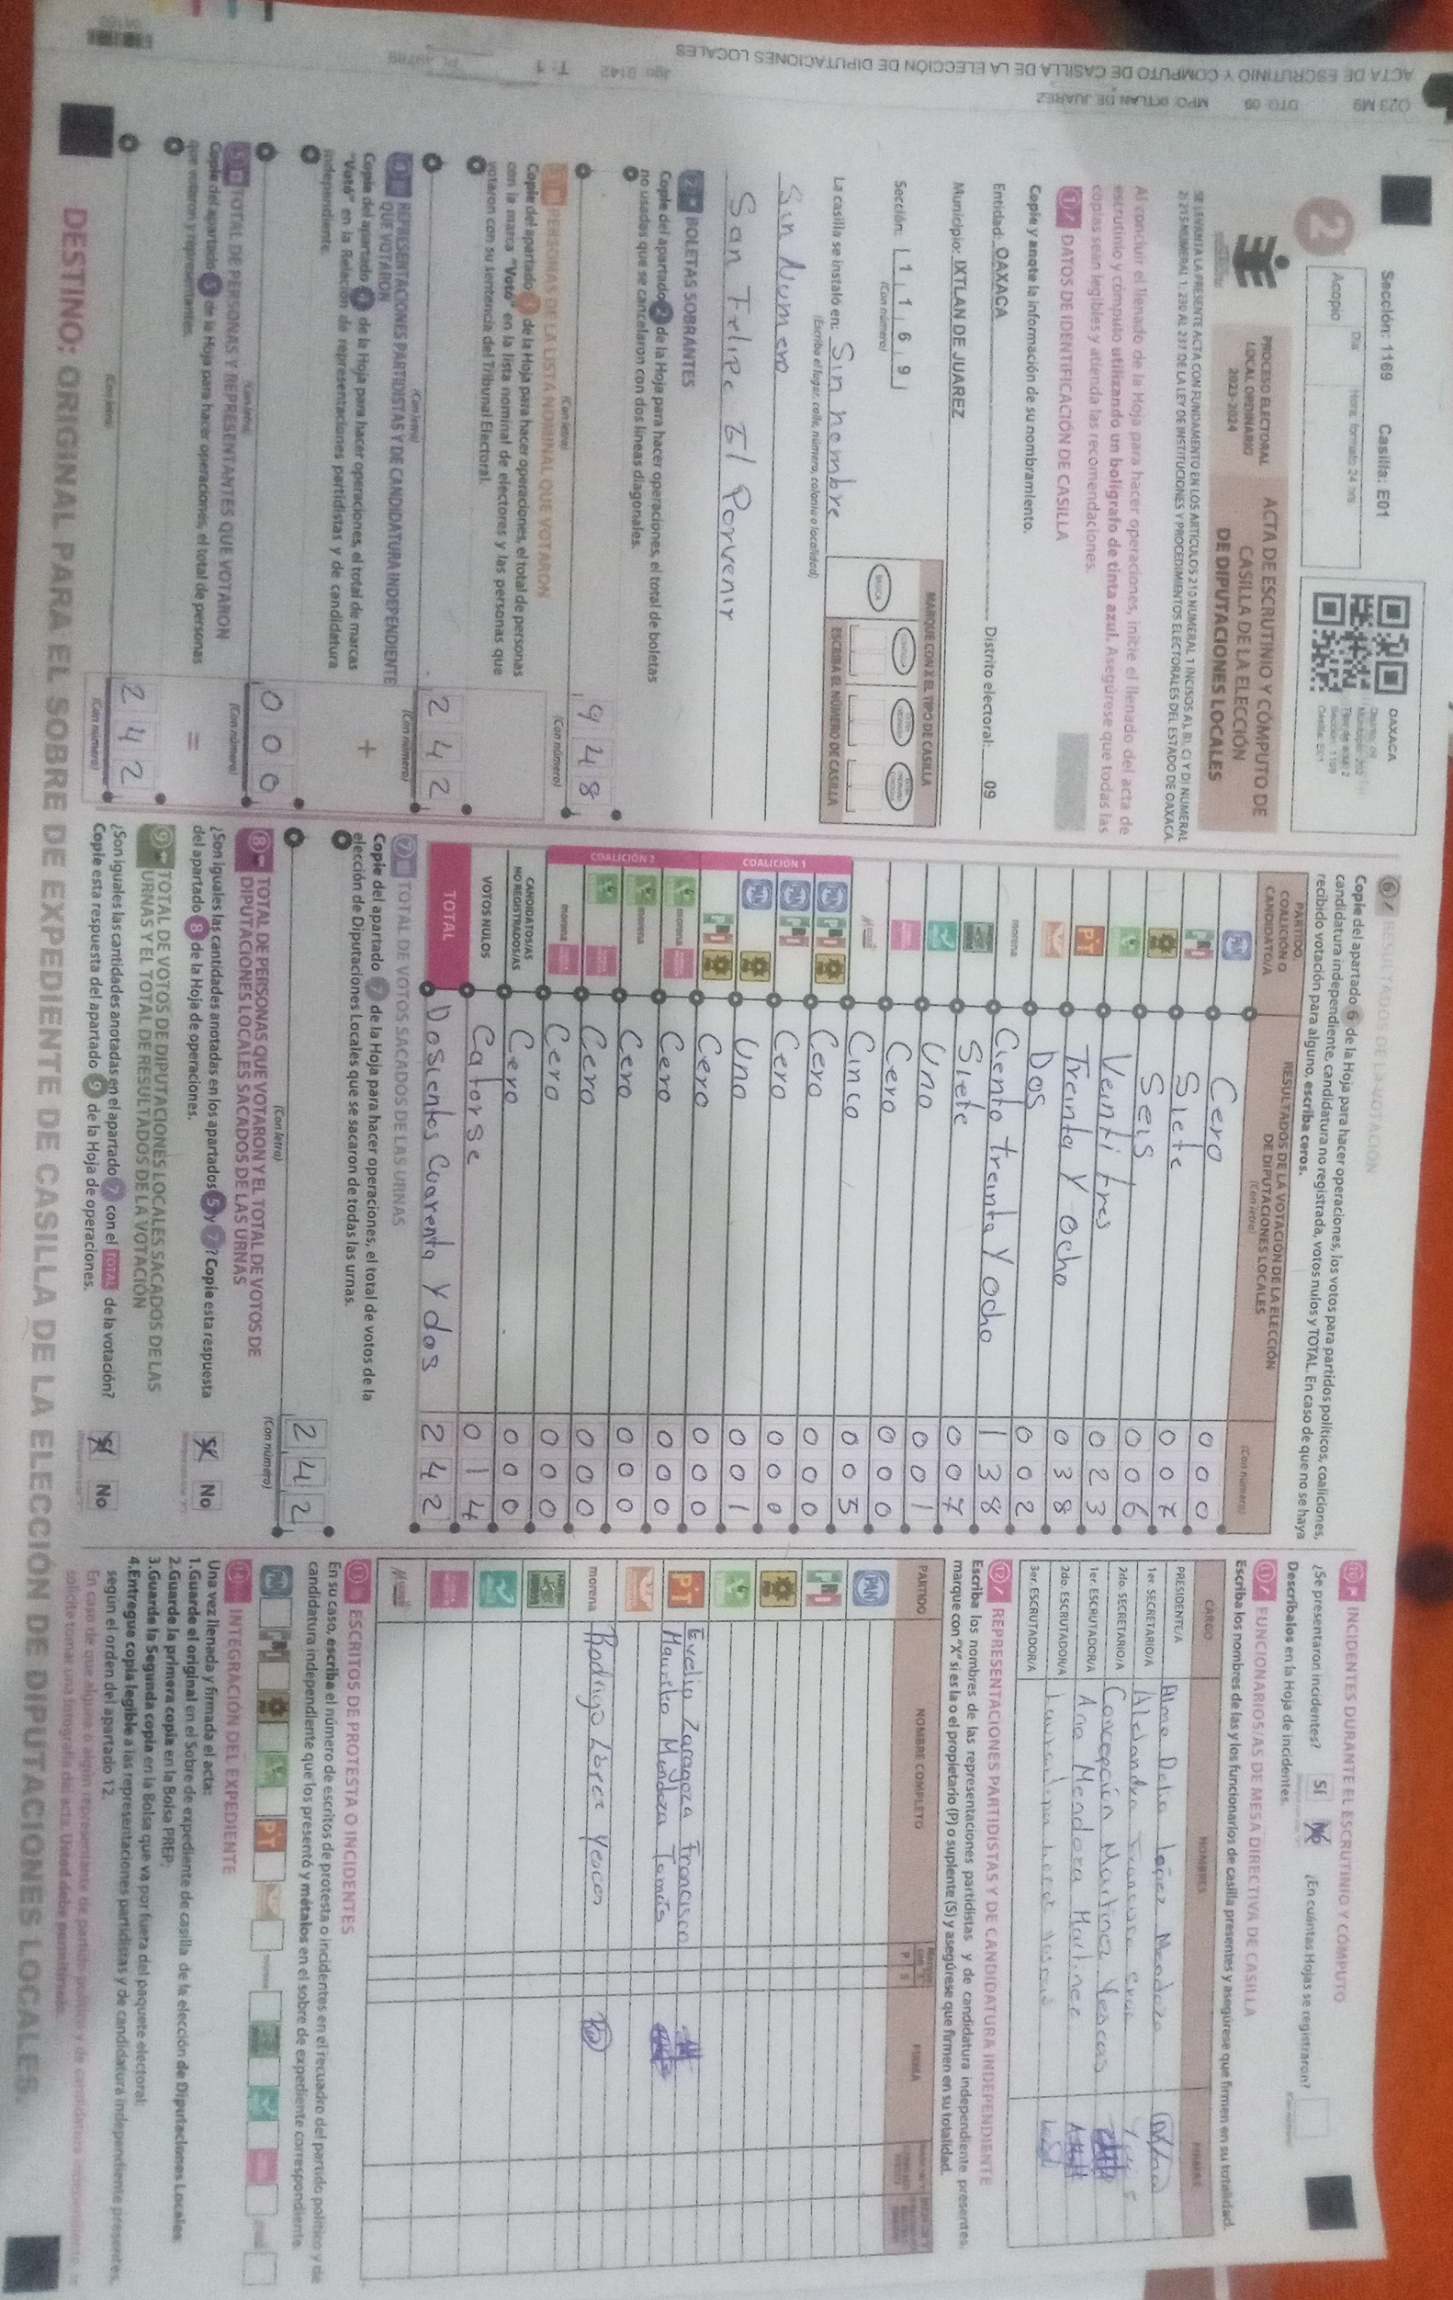 Sección: 1169 Casilla: E01
OAXACA
Día
Hora: formato 24 hrs
Acopio
2
PROCESO ELECTORAL
LOCAL ORDINARIO
2023-2024
ACTA DE ESCRUTINIO Y CÓMPUTO DE
CASILLA DE LA ELECCIÓN
DE DIPUTACIONES LOCALES
Al concluir el llenado de la Hoja para hacer operaciones, inicie el llenado del acta de
escrutinio y cómputo utilizando un bolígrafo de tinta azul. Asegúrese que todas las
copias sean legibles y atienda las recomendaciones.
1 DATOS DE IDENTIFICACIÓN DE CASILLA
Copie y anote la información de su nombramiento.
Entidad: OAXACA Distrito electoral: 09
Municipio: IXTLAN DE JUAREZ
Sección: 1 1 6 9
(Con número)
MARQUE CON X EL TIPO DE CASILLA
ESCRIBA EL NÚMERO DE CASILLA
La casilla se instaló en: Sin nombre
(Escriba el lugar, calle, número, colonia o localidad)
Sin Numero
San Felipe El Porvenir
2 BOLETAS SOBRANTES
Copie del apartado 2 de la Hoja para hacer operaciones, el total de boletas
no usadas que se cancelaron con dos líneas diagonales.
948
(Con letra) (Con número)
3 PERSONAS DE LA LISTA NOMINAL QUE VOTARON
Copie del apartado 3 de la Hoja para hacer operaciones, el total de personas
con la marca "Votó" en la lista nominal de electores y las personas que
votaron con su sentencia del Tribunal Electoral.
242
(Con letra) (Con número)
4 REPRESENTACIONES PARTIDISTAS Y DE CANDIDATURA INDEPENDIENTE
QUE VOTARON
Copie del apartado 4 de la Hoja para hacer operaciones, el total de marcas
"Votó" en la Relación de representaciones partidistas y de candidatura
independiente.
+
000
(Con letra) (Con número)
5 TOTAL DE PERSONAS Y REPRESENTANTES QUE VOTARON
Copie del apartado 5 de la Hoja para hacer operaciones, el total de personas
que votaron y representantes.
=
242
(Con letra) (Con número)
6 RESULTADOS DE LA VOTACIÓN
Copie del apartado 6 de la Hoja para hacer operaciones, los votos para partidos políticos, coaliciones,
candidatura independiente, candidatura no registrada, votos nulos y TOTAL. En caso de que no se haya
recibido votación para alguno, escriba ceros.
PARTIDO,
COALICIÓN O
CANDIDATO/A
RESULTADOS DE LA VOTACIÓN DE LA ELECCIÓN
DE DIPUTACIONES LOCALES
(Con letra)
(Con número)
PAN Cero 000
PRI Siete 007
Seis 006
Veinti tres 023
PT Treinta Y ocho 038
Dos 002
morena Ciento treinta Y ocho 138
Siete 007
Uno 001
Cero 000
COALICIÓN 1
PAN PRI Cinco 005
PAN PRI Cero 000
PAN Cero 000
PRI Uno 001
COALICIÓN 2
morena Cero 000
Cero 000
morena Cero 000
Cero 000
morena Cero 000
CANDIDATOS/AS
NO REGISTRADOS/AS Cero 000
VOTOS NULOS Catorse 014
TOTAL Dosientos Cuarenta Y dos 242
7 TOTAL DE VOTOS SACADOS DE LAS URNAS
Copie del apartado 7 de la Hoja para hacer operaciones, el total de votos de la
elección de Diputaciones Locales que se sacaron de todas las urnas.
242
(Con letra) (Con número)
8 TOTAL DE PERSONAS QUE VOTARON Y EL TOTAL DE VOTOS DE
DIPUTACIONES LOCALES SACADOS DE LAS URNAS
¿Son iguales las cantidades anotadas en los apartados 5 y 7? Copie esta respuesta
del apartado 8 de la Hoja de operaciones.
Sí No
9 TOTAL DE VOTOS DE DIPUTACIONES LOCALES SACADOS DE LAS
URNAS Y EL TOTAL DE RESULTADOS DE LA VOTACIÓN
¿Son iguales las cantidades anotadas en el apartado 7 con el TOTAL de la votación?
Copie esta respuesta del apartado 9 de la Hoja de operaciones.
Sí No
10 INCIDENTES DURANTE EL ESCRUTINIO Y CÓMPUTO
¿Se presentaron incidentes? Sí No ¿En cuántas Hojas se registraron?
Descríbalos en la Hoja de incidentes.
11 FUNCIONARIOS/AS DE MESA DIRECTIVA DE CASILLA
Escriba los nombres de las y los funcionarios de casilla presentes y asegúrese que firmen en su totalidad.
CARGO NOMBRES FIRMAS
PRESIDENTE/A Alma Delia López Mendoza
1er. SECRETARIO/A
2do. SECRETARIO/A Concepción Martinez Yescas
1er. ESCRUTADOR/A Ana Mendoza Martinez
2do. ESCRUTADOR/A
3er. ESCRUTADOR/A
12 REPRESENTACIONES PARTIDISTAS Y DE CANDIDATURA INDEPENDIENTE
Escriba los nombres de las representaciones partidistas y de candidatura independiente presentes,
marque con "X" si es la o el propietario (P) o suplente (S) y asegúrese que firmen en su totalidad.
PARTIDO NOMBRE COMPLETO P S FIRMA
PAN
PRI
PT Evelia Zaragoza Francisco
Mauriko Mendoza Tomás
morena Rodrigo
13 ESCRITOS DE PROTESTA O INCIDENTES
En su caso, escriba el número de escritos de protesta o incidentes en el recuadro del partido político y de
candidatura independiente que los presentó y métalos en el sobre de expediente correspondiente.
14 INTEGRACIÓN DEL EXPEDIENTE
Una vez llenada y firmada el acta:
1.Guarde el original en el Sobre de expediente de casilla de la elección de Diputaciones Locales.
2.Guarde la primera copia en la Bolsa PREP.
3.Guarde la Segunda copia en la Bolsa que va por fuera del paquete electoral.
4.Entregue copia legible a las representaciones partidistas y de candidatura independiente presentes,
según el orden del apartado 12.
DESTINO: ORIGINAL PARA EL SOBRE DE EXPEDIENTE DE CASILLA DE LA ELECCIÓN DE DIPUTACIONES LOCALES.
ACTA DE ESCRUTINIO Y CÓMPUTO DE CASILLA DE LA ELECCIÓN DE DIPUTACIONES LOCALES
023 M9 DTO: 09 MPO: IXTLAN DE JUAREZ